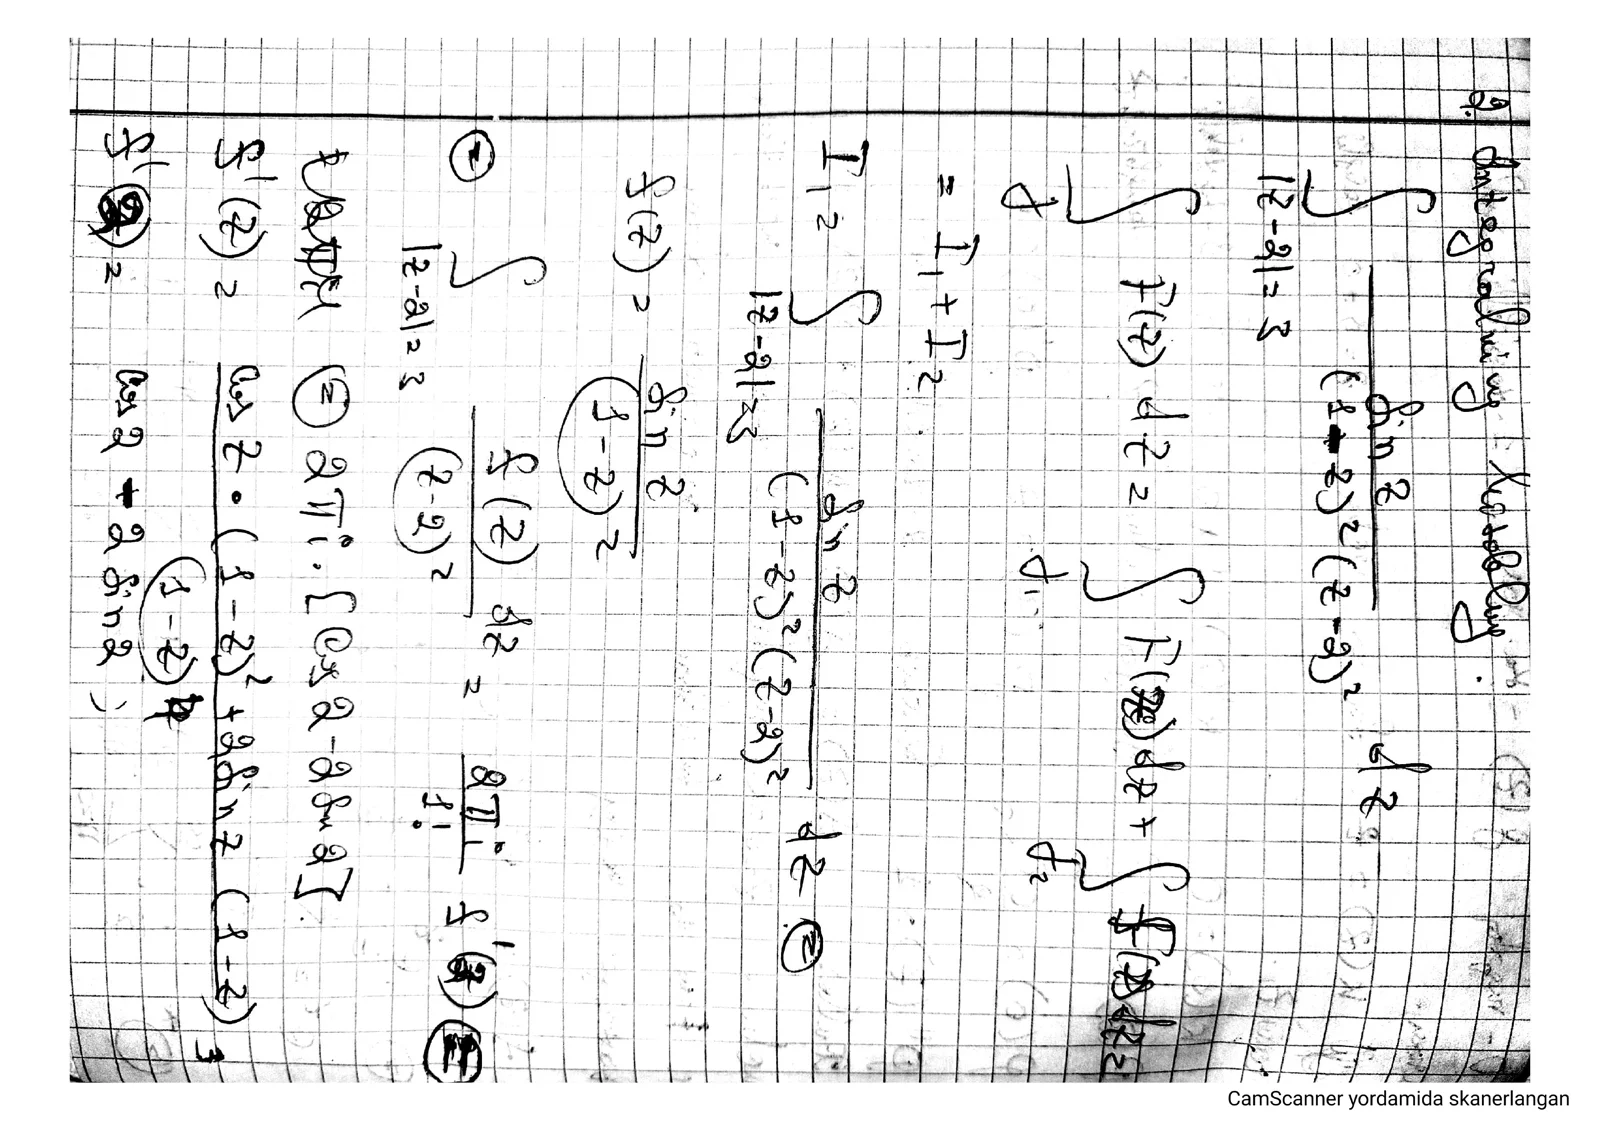 2. Integralning Hisoblang.
∫ |z-2|=3 sin z / (1-z)² (z-2)² dz
∫ γ F(z) dz = ∫ γ₁ F(z) dz + ∫ γ₂ F(z) dz =
= I₁ + I₂
I₁ = ∫ |z-2|=3 sin z / (1-z)² (z-2)² dz ⊜
f(z) = sin z / (1-z)²
⊜ ∫ |z-2|=3 f(z) / (z-2)² dz = 2πi / 1! f'(2) ⊜
⊜ 2πi · [cos 2 - 2 sin 2]
f'(z) = cos z · (1-z)² + 2 sin z (1-z) / (1-z)⁴
f'(2) = cos 2 - 2 sin 2 ;
3
CamScanner yordamida skanerlangan